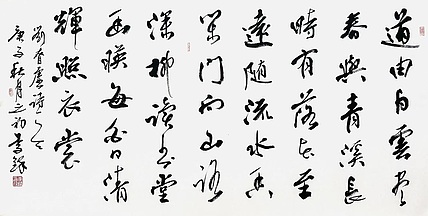 道由白雲盡
春與青溪長
時有落花至
遠隨流水香
閑門向山路
深柳讀書堂
幽暎每白日清
輝照衣裳
劉眘虛詩
秋月之初書